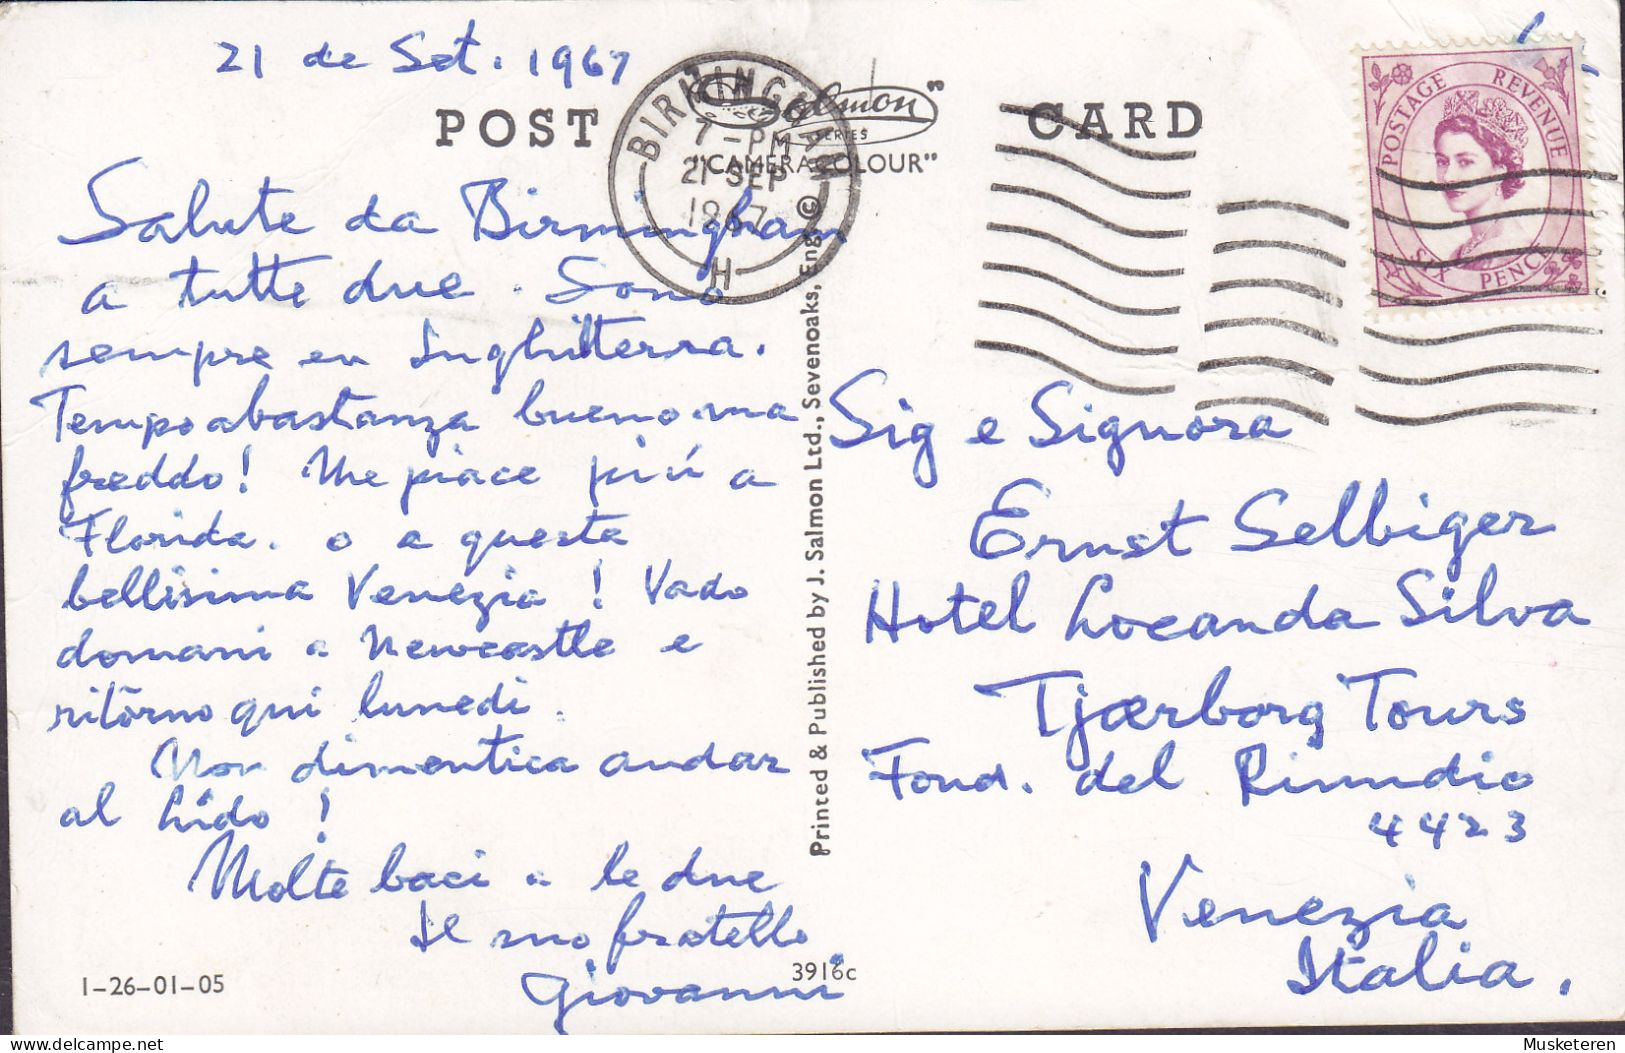 21 de Set. 1967
POST CARD
"Salmon"
SERIES
"CAMERACOLOUR"
BIRMINGHAM
7-PM
21 SEP
1967
H
POSTAGE REVENUE
SIX PENCE
Salute da Birmingham
a tutte due. Sono
sempre en Inghilterra.
Tempo abastanza bueno ma
freddo! Me piace più a
Florida. o a queste
bellisima Venezia! Vado
domani a Newcastle e
ritorno qui lunedi.
Non dimentica andar
al Lido!
Molte baci a le due
Il suo fratello
Giovanni
Printed & Published by J. Salmon Ltd., Sevenoaks, Eng. ©
Sig e Signora
Ernst Selbiger
Hotel Locanda Silva
Tjærborg Tours
Fond. del Rimedio
4423
Venezia
Italia.
1-26-01-05
3916c
Musketeren